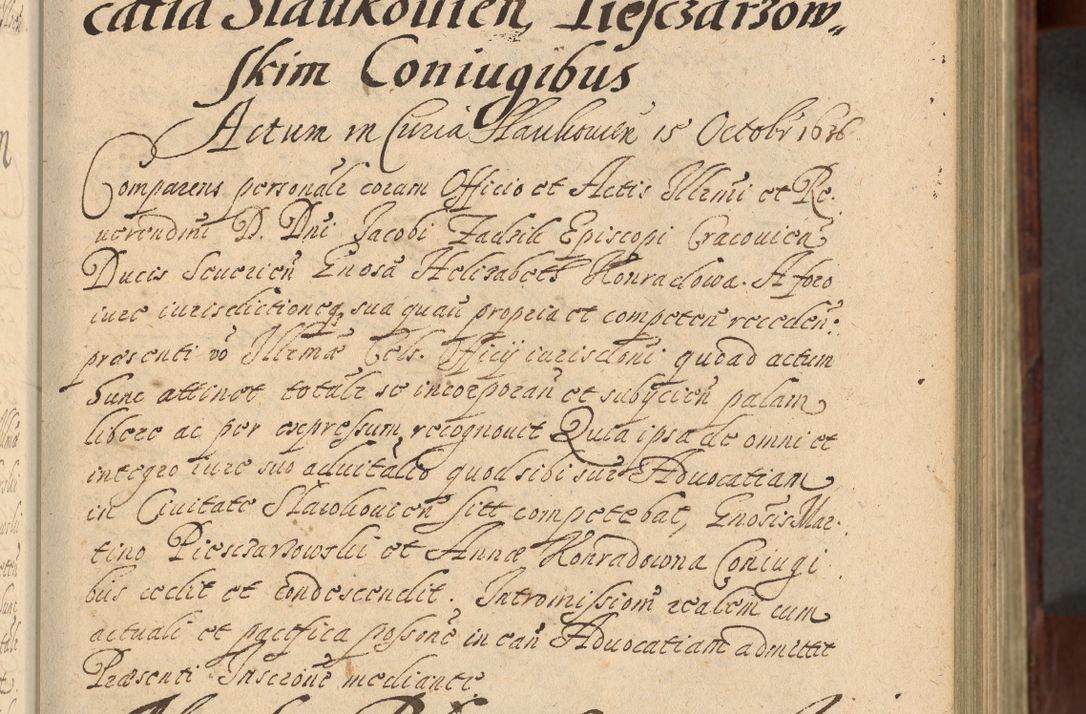 catia Slaukouien, Piesczarzow„
skim Coniugibus
Actum in Curia Slaukouien 15 Octobr 1636
Comparens personale coram Officio et Actis Illrmi et Re.
uerendmi D. Dni Jacobi Zadzik Episcopi Cracouien
Ducis Seuerien Gnosa Helizabeth Konradowa. A foro
iure iurisdictioneq sua quauis propria et competen receden:
presenti vo Illrmæ Cels. Officij iurisdoni quoad actum
hunc attinet totale se incorporan et subijcien palam
libere ac per expressum recognouit Quia ipsa de omni et
integro iure suo aduitali quod sibi sup Aduocatiam
in Ciuitate Slawkouien sitt competebat, Gnosis Mar-
tino Piesczarzowski et Annæ Konradowna Coniugi
bus cedit et condescendit. Intromissiom realem cum
actuali et pacifica possone in ean Aduocatiam admittit
Præsenti Inscrone mediante